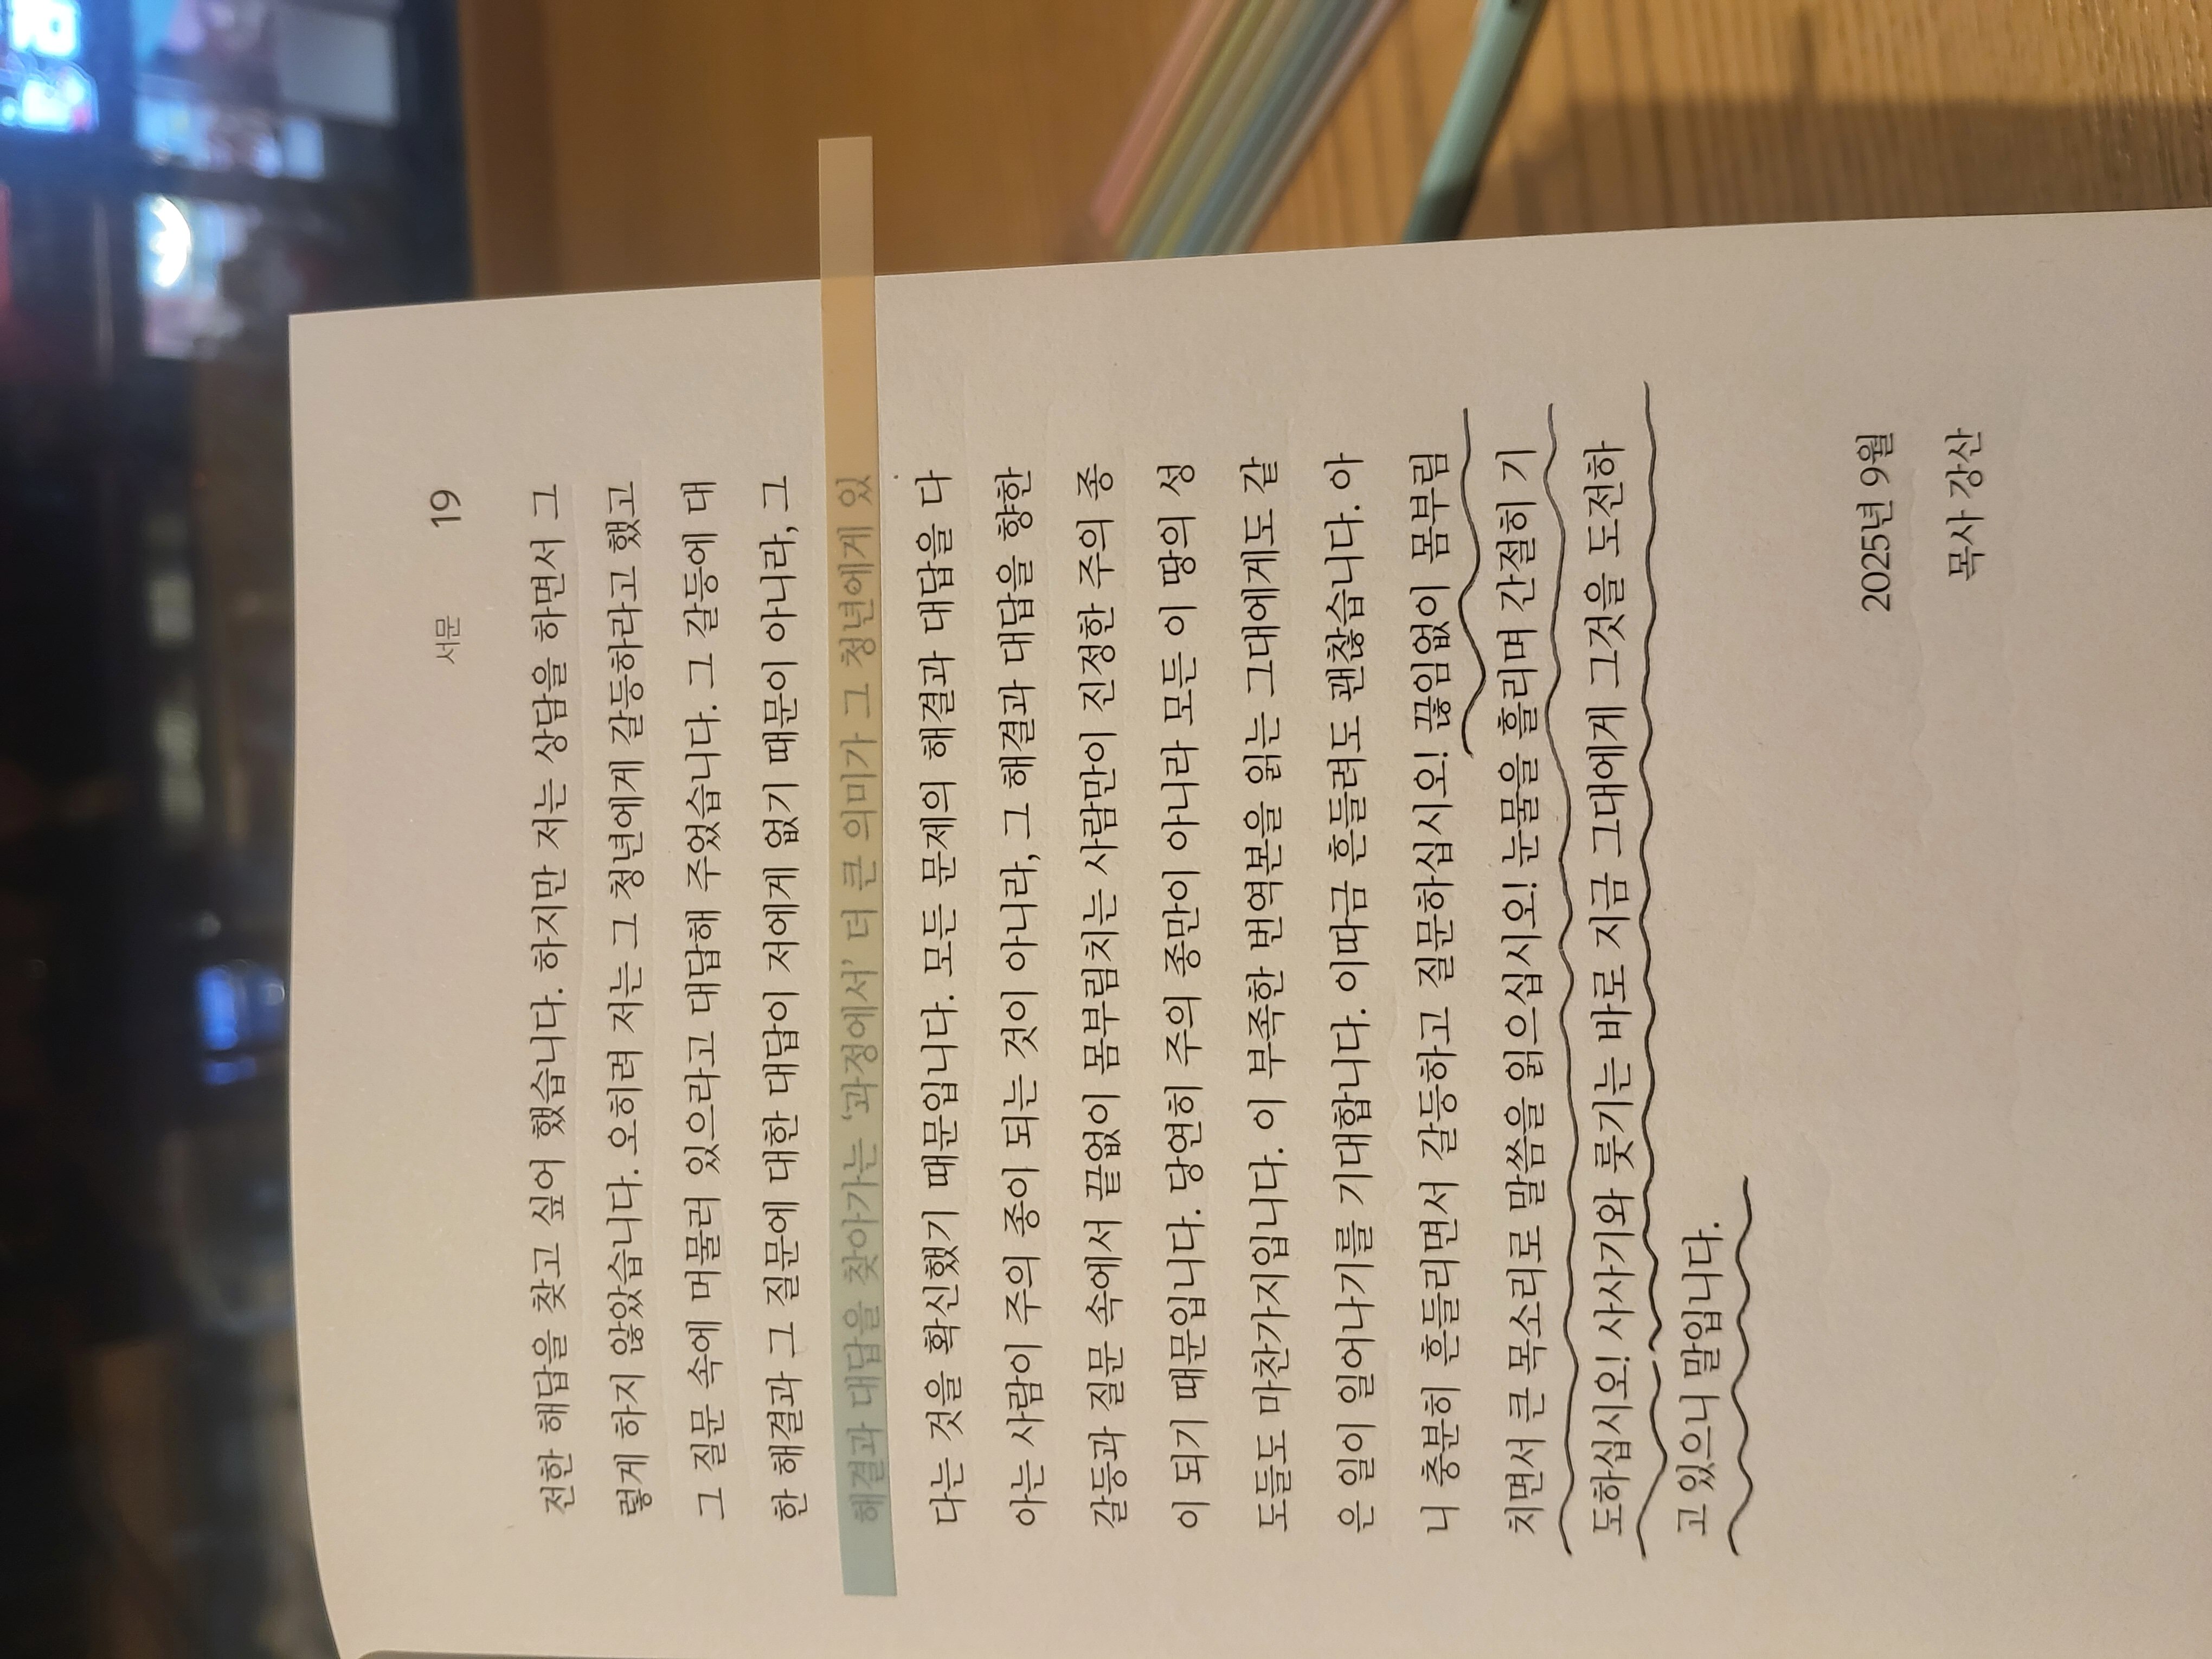 서문 19
전한 해답을 찾고 싶어 했습니다. 하지만 저는 상담을 하면서 그
렇게 하지 않았습니다. 오히려 저는 그 청년에게 갈등하라고 했고
그 질문 속에 머물러 있으라고 대답해 주었습니다. 그 갈등에 대
한 해결과 그 질문에 대한 대답이 저에게 없기 때문이 아니라, 그
해결과 대답을 찾아가는 ‘과정에서’ 더 큰 의미가 그 청년에게 있
다는 것을 확신했기 때문입니다. 모든 문제의 해결과 대답을 다
아는 사람이 주의 종이 되는 것이 아니라, 그 해결과 대답을 향한
갈등과 질문 속에서 끝없이 몸부림치는 사람만이 진정한 주의 종
이 되기 때문입니다. 당연히 주의 종만이 아니라 모든 이 땅의 성
도들도 마찬가지입니다. 이 부족한 번역본을 읽는 그대에게도 같
은 일이 일어나기를 기대합니다. 이따금 흔들려도 괜찮습니다. 아
니 충분히 흔들리면서 갈등하고 질문하십시오! 끊임없이 몸부림
치면서 큰 목소리로 말씀을 읽으십시오! 눈물을 흘리며 간절히 기
도하십시오! 사사기와 룻기는 바로 지금 그대에게 그것을 도전하
고 있으니 말입니다.
2025년 9월
목사 강산